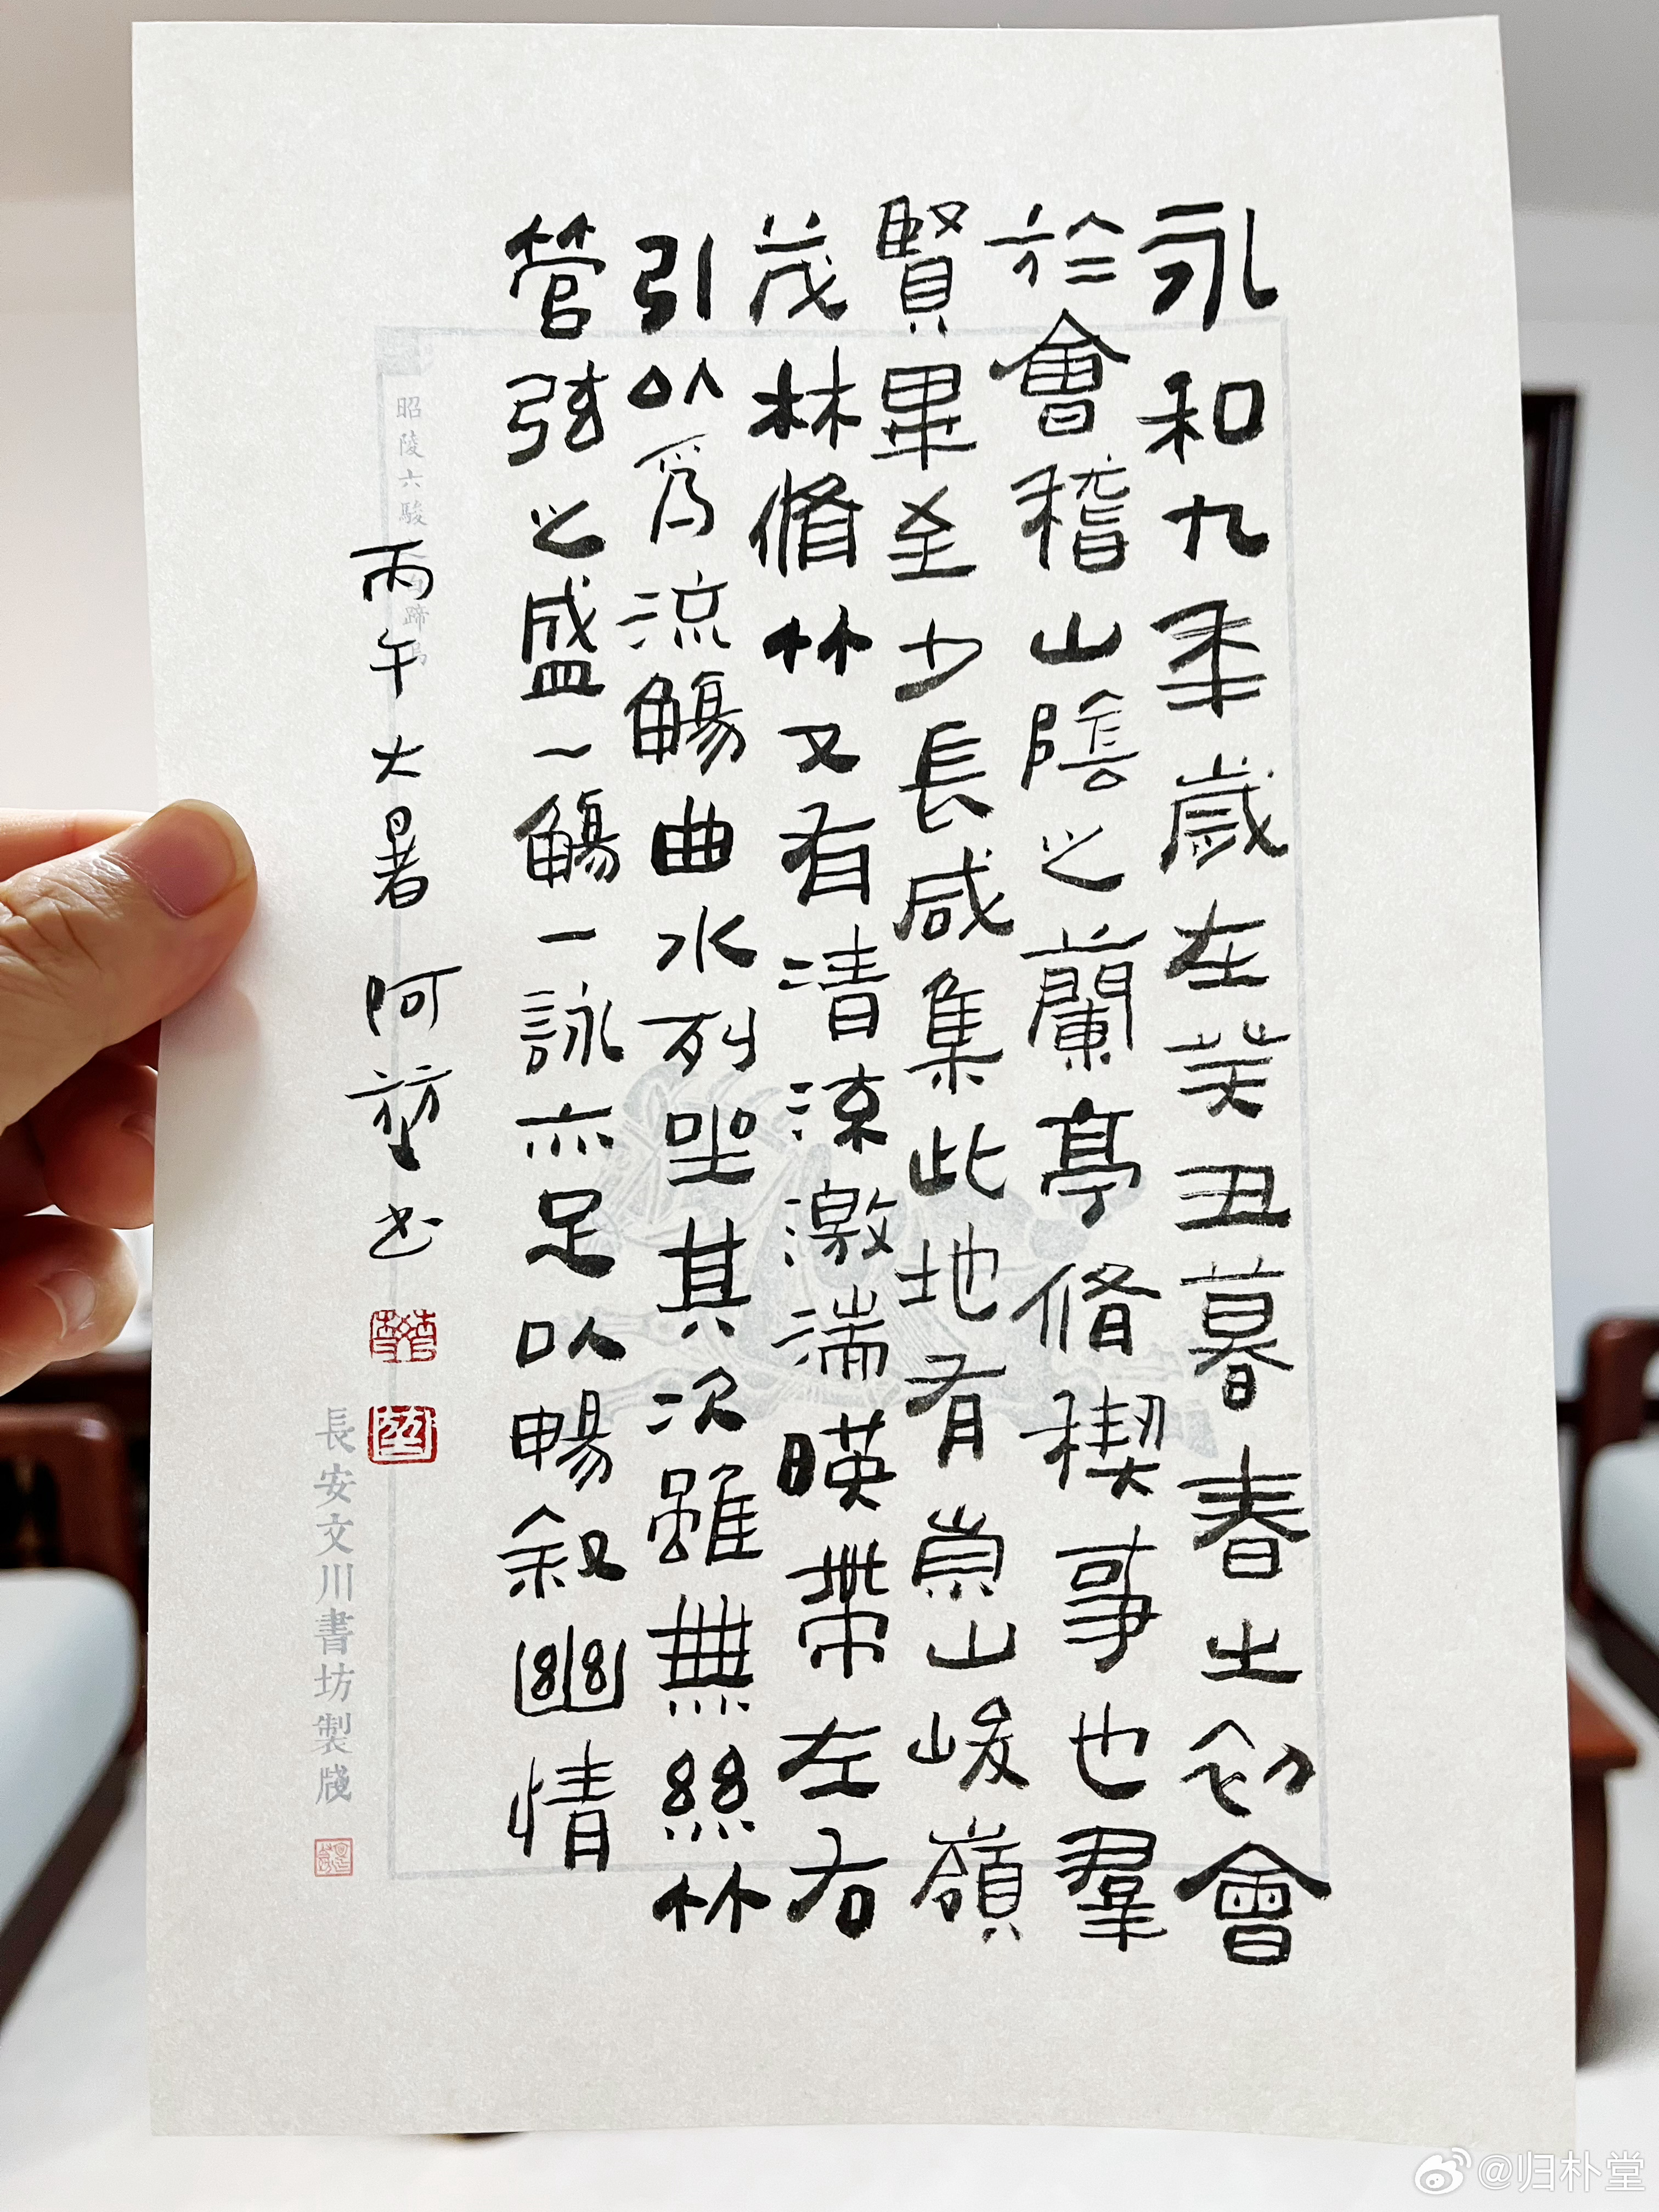 永和九年歲在癸丑暮春之初會
於會稽山陰之蘭亭脩禊事也羣
賢畢至少長咸集此地有崇山峻嶺
茂林脩竹又有清流激湍暎帶左右
引以為流觴曲水列坐其次雖無絲竹
管弦之盛一觴一詠亦足以暢叙幽情
丙午大暑 阿堃书
昭陵六駿
長安文川書坊製牋
@归朴堂